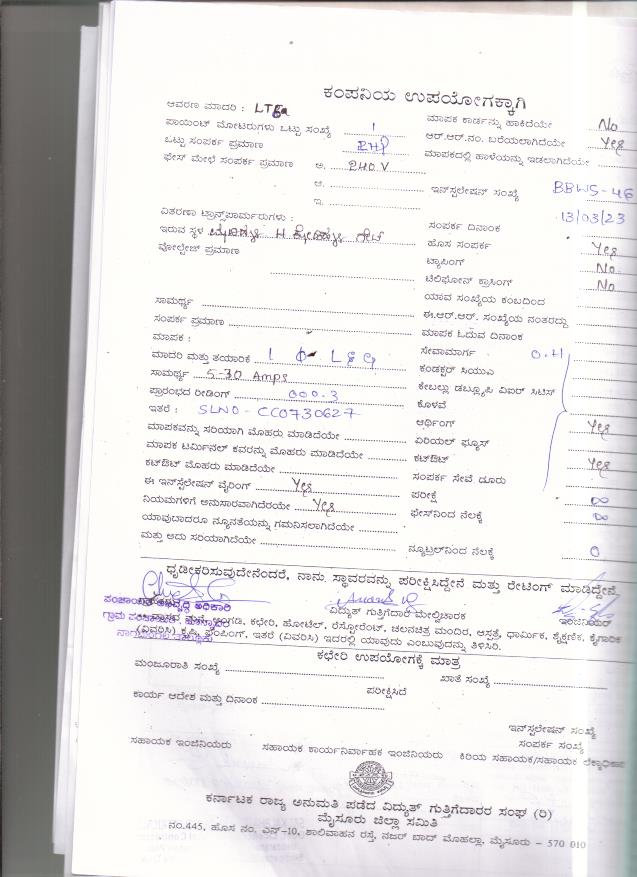 ಕಂಪನಿಯ ಉಪಯೋಗಕ್ಕಾಗಿ
ಆವರಣ ಮಾದರಿ : LT
ಮಾಪಕ ಕಾರ್ಡನ್ನು ಹಾಕಿದೆಯೇ No
ಪಾಯಿಂಟ್ ಮೋಟರುಗಳು ಒಟ್ಟು ಸಂಖ್ಯೆ 1
ಆರ್.ಆರ್.ನಂ. ಬರೆಯಲಾಗಿದೆಯೇ Yes
ಒಟ್ಟು ಸಂಪರ್ಕ ಪ್ರಮಾಣ 2HP
ಮಾಪಕದಲ್ಲಿ ಹಾಳೆಯನ್ನು ಇಡಲಾಗಿದೆಯೇ
ಫೇಸ್ ಮೇಳೆ ಸಂಪರ್ಕ ಪ್ರಮಾಣ ಅ. 240 V
ಆ.
ಇನ್‌ಸ್ಟಲೇಷನ್ ಸಂಖ್ಯೆ BBWS-46
ಇ.
ವಿತರಣಾ ಟ್ರಾನ್ಸ್‌ಪಾರ್ಮರುಗಳು :
ಸಂಪರ್ಕ ದಿನಾಂಕ 13/03/23
ಇರುವ ಸ್ಥಳ
ಹೊಸ ಸಂಪರ್ಕ Yes
ವೋಲ್ಟೇಜ್ ಪ್ರಮಾಣ
ಟ್ಯಾಪಿಂಗ್ No
ಟೆಲಿಫೋನ್ ಕ್ರಾಸಿಂಗ್ No
ಯಾವ ಸಂಖ್ಯೆಯ ಕಂಬದಿಂದ
ಸಾಮರ್ಥ್ಯ
ಈ.ಆರ್.ಆರ್. ಸಂಖ್ಯೆಯ ನಂತರದ್ದು
ಸಂಪರ್ಕ ಪ್ರಮಾಣ
ಮಾಪಕ ಓದುವ ದಿನಾಂಕ
ಮಾಪಕ :
ಸೇವಾಮಾರ್ಗ O.H
ಮಾದರಿ ಮತ್ತು ತಯಾರಿಕೆ 1 Φ L&G
ಕಂಡಕ್ಟರ್ ಸಿಯುಎ
ಸಾಮರ್ಥ್ಯ 5-30 Amps
ಕೇಬಲ್ಲು ಡಬ್ಲ್ಯೂಪಿ ವಿಐರ್ ಸಿಟಿಸ್
ಪ್ರಾರಂಭದ ರೀಡಿಂಗ್ 000.3
ಕೊಳವೆ
ಇತರೆ : SLNO - CC0730627
ಆರ್ಥಿಂಗ್ Yes
ಮಾಪಕವನ್ನು ಸರಿಯಾಗಿ ಮೊಹರು ಮಾಡಿದೆಯೇ
ಏರಿಯಲ್ ಫ್ಯೂಸ್
ಮಾಪಕ ಟರ್ಮಿನಲ್ ಕವರನ್ನು ಮೊಹರು ಮಾಡಿದೆಯೇ
ಕಟ್‌ಔಟ್ Yes
ಕಟ್‌ಔಟ್ ಮೊಹರು ಮಾಡಿದೆಯೇ
ಸಂಪರ್ಕ ಸೇವೆ ದೂರು
ಈ ಇನ್‌ಸ್ಟೆಲೇಷನ್ ವೈರಿಂಗ್ Yes
ಪರೀಕ್ಷೆ ∞
ನಿಯಮಗಳಿಗೆ ಅನುಸಾರವಾಗಿದೆರಯೇ Yes
ಫೇಸ್‌ನಿಂದ ನೆಲಕ್ಕೆ ∞
ಯಾವುದಾದರೂ ನ್ಯೂನತೆಯನ್ನು ಗಮನಿಸಲಾಗಿದೆಯೇ
ಮತ್ತು ಅದು ಸರಿಯಾಗಿದೆಯೇ
ನ್ಯೂಟ್ರಲ್‌ನಿಂದ ನೆಲಕ್ಕೆ 0
ಧೃಡೀಕರಿಸುವುದೇನೆಂದರೆ, ನಾನು ಸ್ಥಾವರವನ್ನು ಪರೀಕ್ಷಿಸಿದ್ದೇನೆ ಮತ್ತು ರೇಟಿಂಗ್ ಮಾಡಿದ್ದೇನೆ
ಪಂಚಾಯಿತಿ ಅಭಿವೃದ್ಧಿ ಅಧಿಕಾರಿ
ವಿದ್ಯುತ್ ಗುತ್ತಿಗೆದಾರ ಮೇಲ್ವಿಚಾರಕ
ಇಂಜಿನಿಯರ್
ಅಂಗಡಿ, ಕಛೇರಿ, ಹೋಟೆಲ್, ರೆಸ್ಟೋರೆಂಟ್, ಚಲನಚಿತ್ರ ಮಂದಿರ, ಆಸ್ಪತ್ರೆ, ಧಾರ್ಮಿಕ, ಶೈಕ್ಷಣಿಕ, ಕೈಗಾರಿಕ
(ವಿವರಿಸಿ) ಕೃಷಿ, ಪಂಪಿಂಗ್, ಇತರೆ (ವಿವರಿಸಿ) ಇದರಲ್ಲಿ ಯಾವುದು ಎಂಬುವುದನ್ನು ತಿಳಿಸಿರಿ.
ಕಛೇರಿ ಉಪಯೋಗಕ್ಕೆ ಮಾತ್ರ
ಮಂಜೂರಾತಿ ಸಂಖ್ಯೆ
ಖಾತೆ ಸಂಖ್ಯೆ
ಪರೀಕ್ಷಿಸಿದೆ
ಕಾರ್ಯ ಆದೇಶ ಮತ್ತು ದಿನಾಂಕ
ಇನ್‌ಸ್ಟಲೇಷನ್ ಸಂಖ್ಯೆ
ಸಂಪರ್ಕ ಸಂಖ್ಯೆ
ಸಹಾಯಕ ಇಂಜಿನಿಯರು
ಸಹಾಯಕ ಕಾರ್ಯನಿರ್ವಾಹಕ ಇಂಜಿನಿಯರು
ಕಿರಿಯ ಸಹಾಯಕ/ಸಹಾಯಕ
ಕರ್ನಾಟಕ ರಾಜ್ಯ ಅನುಮತಿ ಪಡೆದ ವಿದ್ಯುತ್ ಗುತ್ತಿಗೆದಾರರ ಸಂಘ (ರಿ)
ಮೈಸೂರು ಜಿಲ್ಲಾ ಸಮಿತಿ
ನಂ.445, ಹೊಸ ನಂ, ಎನ್-10, ಶಾಲಿವಾಹನ ರಸ್ತೆ, ನಜರ್ ಬಾದ್ ಮೊಹಲ್ಲಾ, ಮೈಸೂರು - 570 010